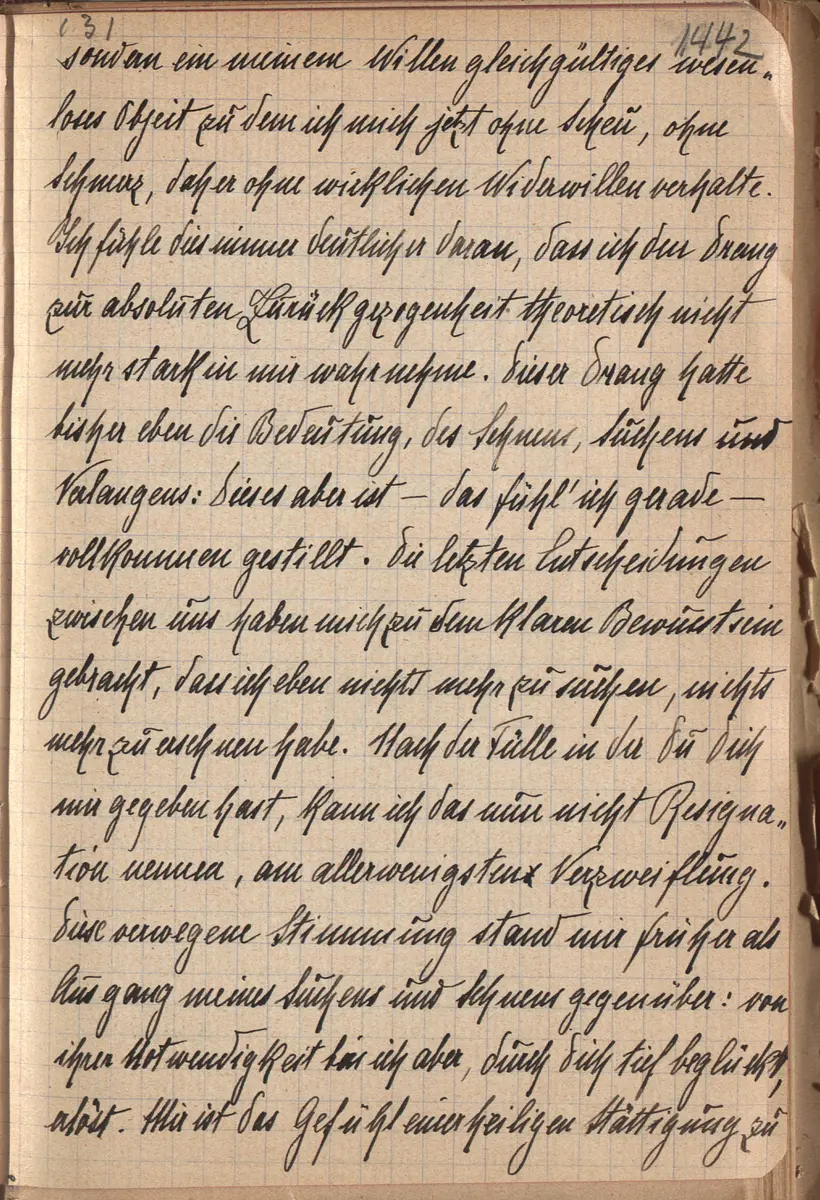 131 1442
sondern ein meinem Willen gleichgültiges wesen„
loses Objeit zu dem ich mich jetzt ohne Scheu, ohne
Schmerz, daher ohne wirklichen Widerwillen verhalte.
Ich fühle dies immer deutlicher daran, dass ich den Drang
zur absoluten Zurückgezogenheit theoretisch nicht
mehr stark in mir wahrnehme. Dieser Drang hatte
bisher eben die Bedeutung, des Sehnens, Suchens und
Verlangens: dieses aber ist — das fühl' ich gerade —
vollkommen gestillt. Die letzten Entscheidungen
zwischen uns haben mich zu dem klaren Bewusstsein
gebracht, dass ich eben nichts mehr zu suchen, nichts
mehr zu ersehnen habe. Nach der Fülle in der Du Dich
mir gegeben hast, kann ich das nun nicht Resigna„
tion nennen, am allerwenigsten Verzweiflung.
Diese verwegene Stimmung stand mir früher als
Ausgang meines Suchens und Sehnens gegenüber: von
ihrer Notwendigkeit bin ich aber, durch Dich tief beglückt,
erlöst. Mir ist das Gefühl einer heiligen Sättigung zu